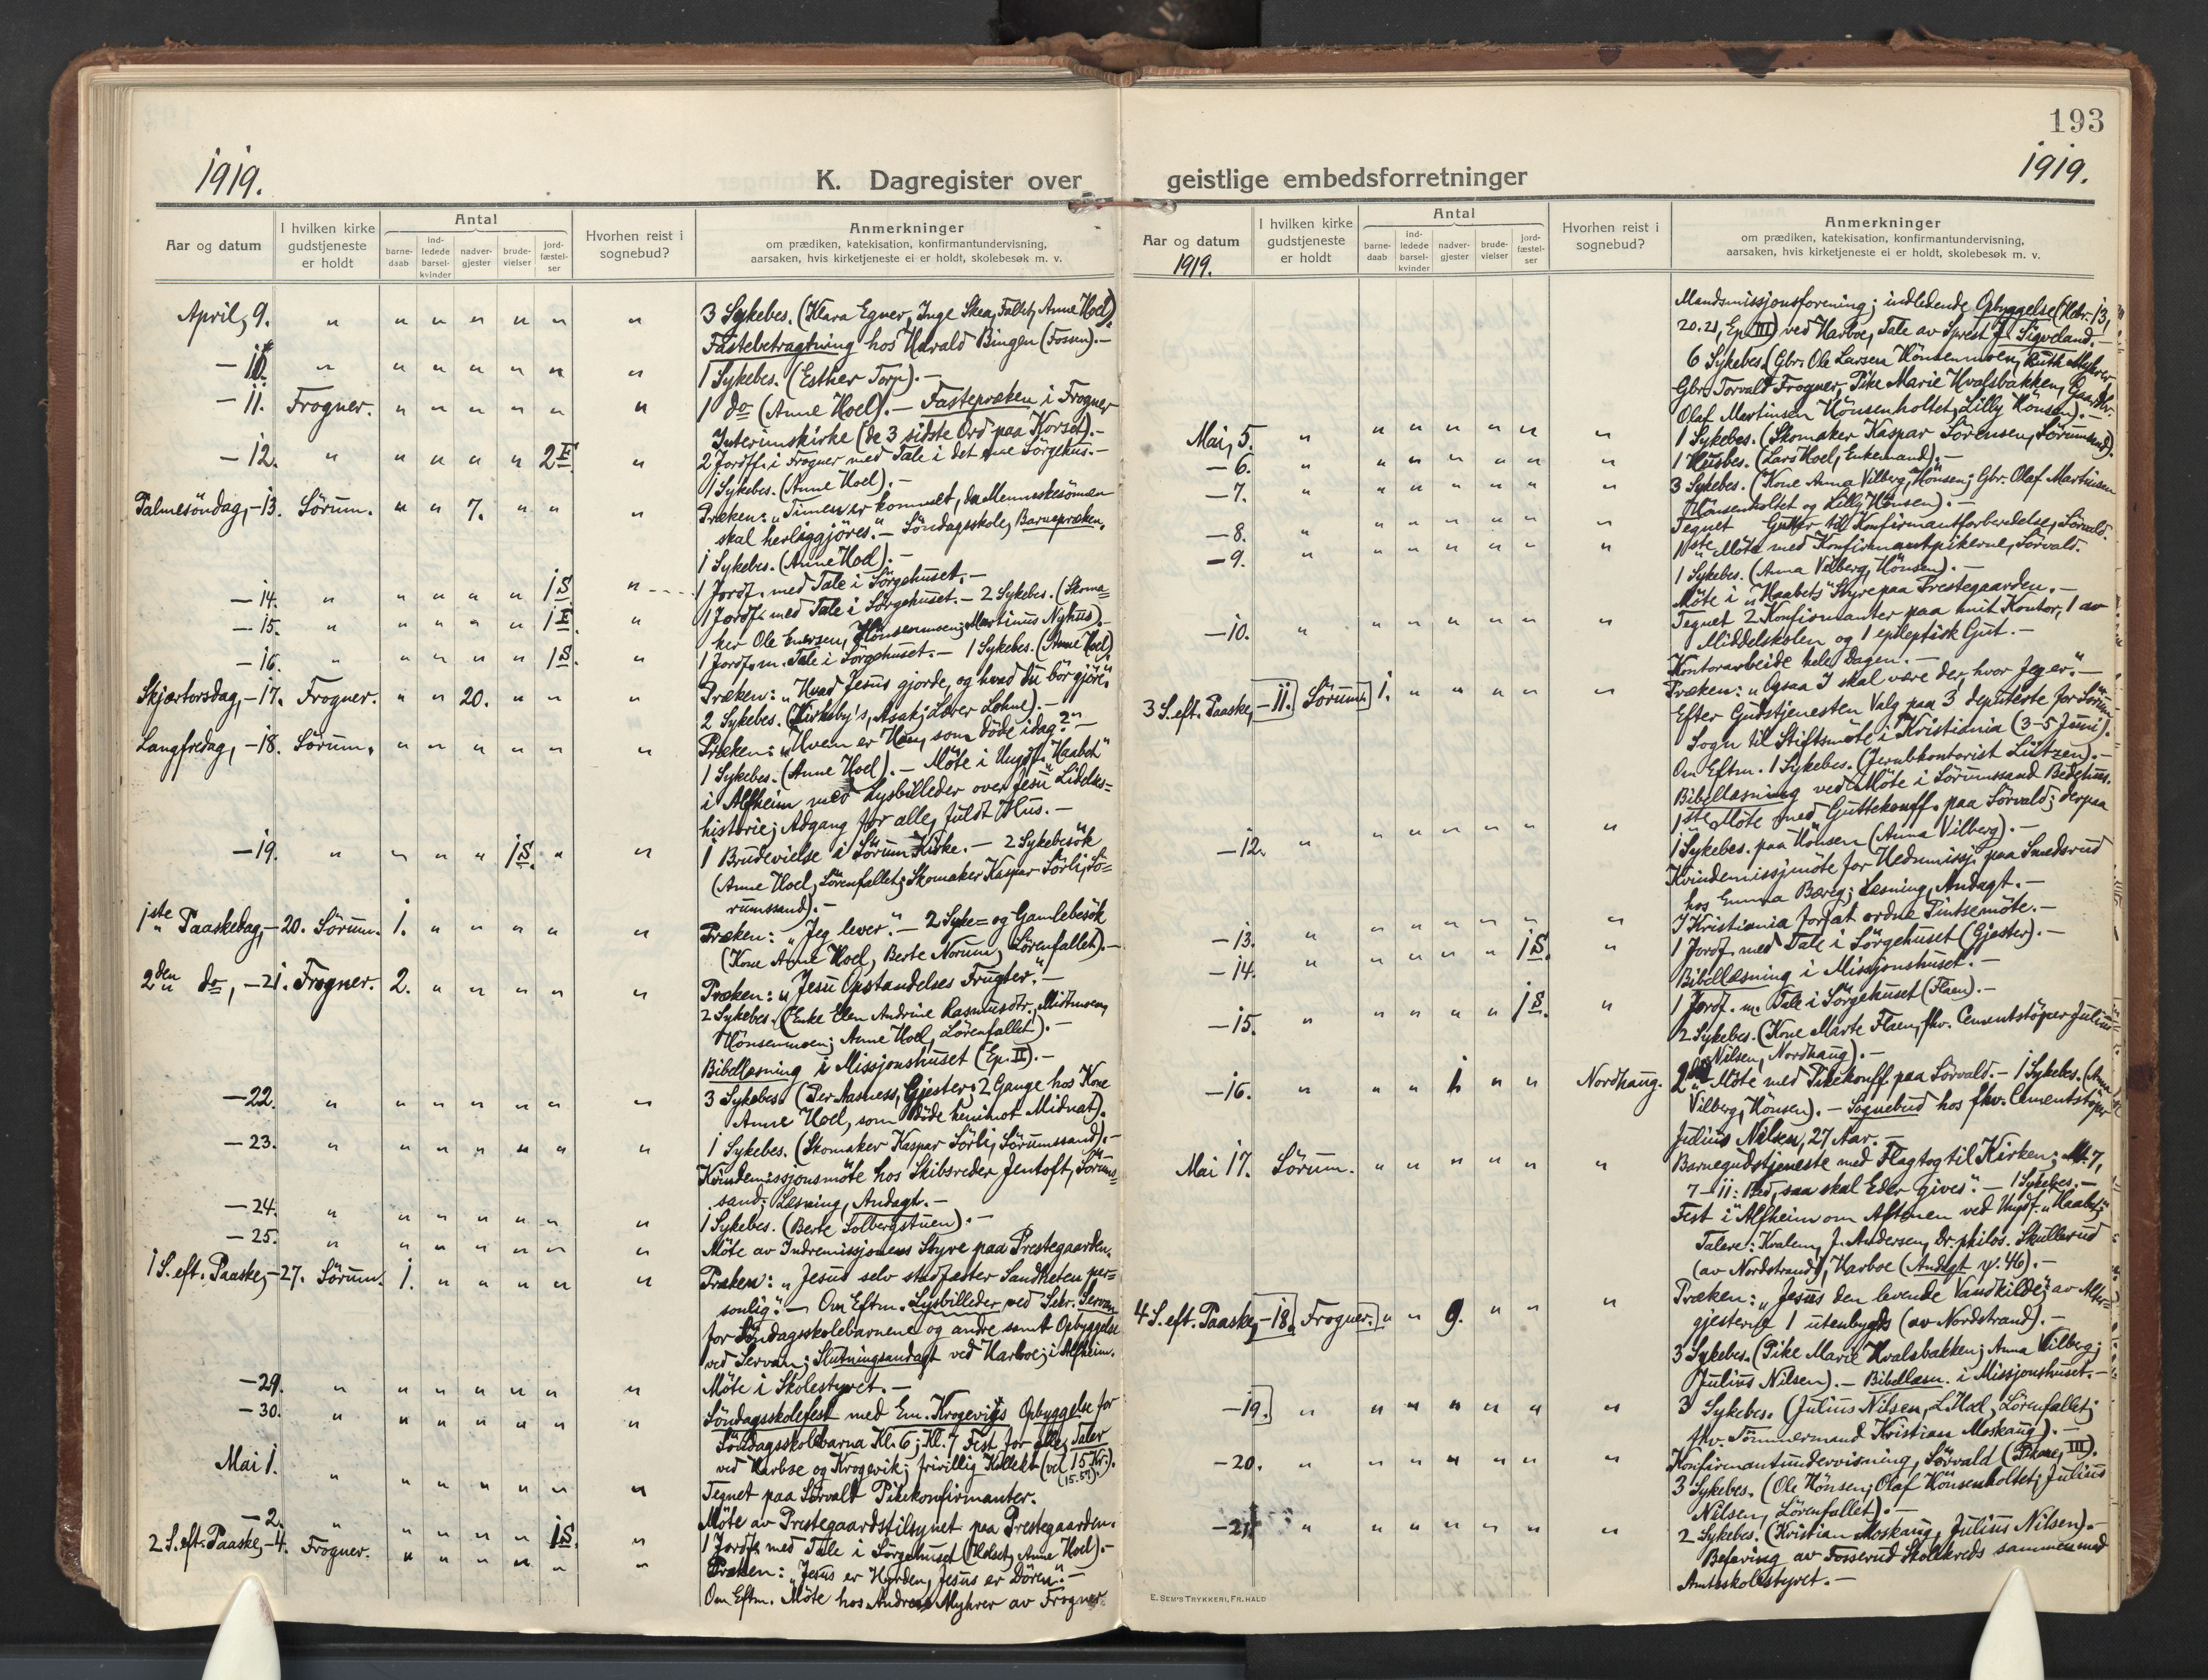 193
1919.
K. Dagregister over
geistlige embedsforretninger
1919.
Aar og datum
I hvilken kirke gudstjeneste er holdt
Antal
barne-daab
ind-ledede barsel-kvinder
nadver-gjester
brude-vielser
jord-fæstel-ser
Hvorhen reist i sognebud?
Anmerkninger
om prædiken, katekisation, konfirmantundervisning,
aarsaken, hvis kirketjeneste ei er holdt, skolebesøk m. v.
April, 9. " " " " " " " 3 Sykebes. (Klara Egner, Inge Skea, Fallet, Anne Hoel).
Fastebetragtning hos Harald Bingen (Fossen).—
— 10. " " " " " " " 1 Sykebes. (Esther Torp).—
— 11. Frogner. " " " " " " 1 do (Anne Hoel).— Fastepræken i Frogner
Interimskirke (de 3 sidste Ord paa Korset).—
— 12. " " " " " 2F " 2 Jordf. i Frogner med Tale i det ene Sörgehus.—
1 Sykebes. (Anne Hoel).—
Palmesöndag, — 13. Sörum. " " 7. " " " Præken: „Timen er kommet, da Menneskesönnen
skal herliggjöres."— Söndagsskole, Barnepræken.
1 Sykebes. (Anne Hoel).—
— 14. " " " " " 1S " 1 Jordf. med Tale i Sörgehuset.—
— 15. " " " " " 1F. " 1 Jordf. med Tale i Sörgehuset.— 2 Sykebes. (Skoma=
ker Ole Enersen, Hönsenmoen; Martinus Nyhus).—
— 16. " " " " " 1S. " 1 Jordf. m. Tale i Sörgehuset.— 1 Sykebes. (Anne Hoel)
Skjærtorsdag, — 17. Frogner. " " 20. " " " Præken: „Hvad Jesus gjorde, og hvad du bör gjöre."
2 Sykebes. (Kirkeby's, Asak; Lærer Lohne).—
Langfredag, — 18. Sörum. " " " " " " Præken: „Hvem er Han, som döde idag?"—
1 Sykebes. (Anne Hoel).— Möte i Ungdf. „Haabet"
i Alfheim med Lysbilleder over Jesu Lidelses=
historie; Adgang for alle, fuldt Hus.—
— 19. " " " " 1S. " " 1 Brudevielse i Sörum Kirke.— 2 Sykebesök
(Anne Hoel, Sörenfallet; Skomaker Kaspar Sörli, Sö=
rumssand).—
1ste Paaskedag, — 20. Sörum. 1. " " " " " Præken: „Jeg lever."— 2 Syke= og Gamlebesök
(Kone Anne Hoel, Berte Norum, Sörenfallet).—
2den do, — 21. Frogner. 2. " " " " " Præken: „Jesu Opstandelses Frugter."—
2 Sykebes. (Enke Elen Andrine Rasmusdtr. Midtmoen,
Hönsenmoen; Anne Hoel, Lörenfallet).—
Bibellæsning i Missjonshuset (Ep. II).—
— 22. " " " " " " " 3 Sykebes. (Per Aasness, Gjester; 2 Gange hos Kone
Anne Hoel, som döde henimot Midnat).
— 23. " " " " " " " 1 Sykebes. (Skomaker Kaspar Sörli, Sörumssand).—
Kvindemissjonsmöte hos Skibsreder Jentoft, Sörums=
sand; Læsning, Andagt.—
— 24. " " " " " " " 1 Sykebes. (Berte Solbergstuen).—
— 25. " " " " " " " Möte av Indremissjonens Styre paa Prestegaarden.
1 S. eft. Paaske, — 27. Sörum. 1. " " " " " Præken: „Jesus selv stadfæster Sandheten per=
sonlig."— Om Eftm. Lysbilleder ved Sekr. Servan
for Söndagsskolebarnene og andre samt Opbyggelse
ved Servan; Slutningsandagt ved Harboe; i Alfheim.
— 29. " " " " " " " Möte i Skolestyret.—
— 30. " " " " " " " Söndagsskolefest med Em. Krogeviks Opbyggelse for
Söndagsskolebarna Kl. 6; Kl. 7 Fest for alle; Taler
ved Harboe og Krogevik; frivillig Kollekt (vel 15 Kr.).
(15.57).
Mai 1. " " " " " " " Tegnet paa Sörvald Pikekonfirmanter.
Möte av Prestegaardstilsynet paa Prestegaarden.
— 2. " " " " " 1S. " 1 Jordf. med Tale i Sörgehuset (Holset, Anne Hoel).—
2 S. eft. Paaske, — 4. Frogner. " " " " " " Præken: „Jesus er Hyrden, Jesus er Dören."—
Om Eftm. Möte hos Andreas Myhrer av Frogner
Aar og datum
1919.
I hvilken kirke gudstjeneste er holdt
Antal
barne-daab
ind-ledede barsel-kvinder
nadver-gjester
brude-vielser
jord-fæstel-ser
Hvorhen reist i sognebud?
Anmerkninger
om prædiken, katekisation, konfirmantundervisning,
aarsaken, hvis kirketjeneste ei er holdt, skolebesøk m. v.
Mandsmissjonsforening; indledende Opbyggelse (Hebr. 13,
20.21, Ep. III) ved Harboe, Tale av Sprest J. Sigveland.—
6 Sykebes. (Gbr. Ole Larsen Hönsenmoen, Ruth Myhrer,
Gbr. Torvald Frogner, Pike Marie Hvalsbakken, Gaardbr.
Olaf Martinsen Hönsenholtet, Lilly Hönsen).—
Mai, 5. " " " " " " " 1 Sykebes. (Skomaker Kaspar Sörensen, Sörumssand).
— 6. " " " " " " " 1 Husbes. (Lars Hoel, Enkemand).—
— 7. " " " " " " " 3 Sykebes. (Kone Anna Vilberg, Hönsen; Gbr. Olaf Martinsen
Hönsenholtet og Lilly Hönsen).—
— 8. " " " " " " " Tegnet Gutter til Konfirmantforberedelse, Sörvald.
— 9. " " " " " " " 1ste Möte med Konfirmantpikerne, Sörvald.
1 Sykebes. (Anna Vilberg, Hönsen).—
Möte i „Haabets" Styre paa Prestegaarden.—
— 10. " " " " " " " Tegnet 2 Konfirmanter paa mit Kontor, 1 av
Middelskolen og 1 epileptisk Gut.—
Kontorarbeide hele Dagen.—
3 S. eft. Paaske, — 11. Sörum. 1. " " " " " Præken: „Ogsaa I skal være der, hvor Jeg er."—
Efter Gudstjenesten Valg paa 3 deputerte for Sörum
Sogn til Stiftsmöte i Kristiania (3–5 Juni).
Om Eftm. 1 Sykebes. (Jernbkontorist Lützen).—
Bibellæsning ved Möte i Sörumssand Bedehus.
— 12. " " " " " " " 1ste Möte med Guttekonff. paa Sörvald; derpaa
1 Sykebes. paa Hönsen (Anna Vilberg).—
Kvindemissjmöte for Hedmissj. paa Smedsrud
hos Emma Berg; Læsning, Andagt.—
— 13. " " " " " " " I Kristiania for at ordne Pintsemöte.—
— 14. " " " " " 1S. " 1 Jordf. med Tale i Sörgehuset (Gjester).—
Bibellæsning i Missjonshuset.—
— 15. " " " " " 1S. " 1 Jordf. m. Tale i Sörgehuset (Flaen).—
2 Sykebes. (Kone Marte Flaen, fhv. Cementstöper Julius
Nilsen, Nordhaug).—
— 16. " " " 1 " " Nordhaug. 2det Möte med Pikekonff paa Sörvald.— 1 Sykebes. (Anna
Vilberg, Hönsen).— Sognebud hos fhv. Cementstöper
Julius Nilsen, 27 Aar.—
Mai 17. Sörum. " " " " " " Barnegudstjeneste med Flagtog til Kirken; Mt. 7,
7–11: „Bed, saa skal Eder gives".— 1 Sykebes.—
Fest i Alfheim om Aftenen ved Ungdf. „Haabet";
Talere: Kvalem, J. Andersen, Dr. philos. Skullerud
(av Nordstrand), Harboe (Andagt ψ. 46).—
4 S. eft. Paaske, — 18. Frogner. " " 9. " " " Præken: „Jesus den levende Vandkilde; av Alter=
gjesterne 1 utenbygds (av Nordstrand).—
3 Sykebes. (Pike Marie Hvalsbakken; Anna Vilberg;
Julius Nilsen).— Bibellæsn. i Missjonshuset.—
— 19. " " " " " " " 3 Sykebes. (Julius Nilsen, L. Hoel, Lörenfallet;
fhv. Tömmermand Kristian Moskaug).—
— 20. " " " " " " " Konfirmantundervisning, Sörvald (Pikene, III).
3 Sykebes. (Ole Hönsen; Olaf Hönsenholtet; Julius
Nilsen, Lörenfallet).—
— 21. " " " " " " " 2 Sykebes. (Kristian Moskaug, Julius Nilsen).—
Befaring av Fosserud Skolekreds sammen med
Amtsskolestyret.—
E. SEM'S TRYKKERI, FR.HALD